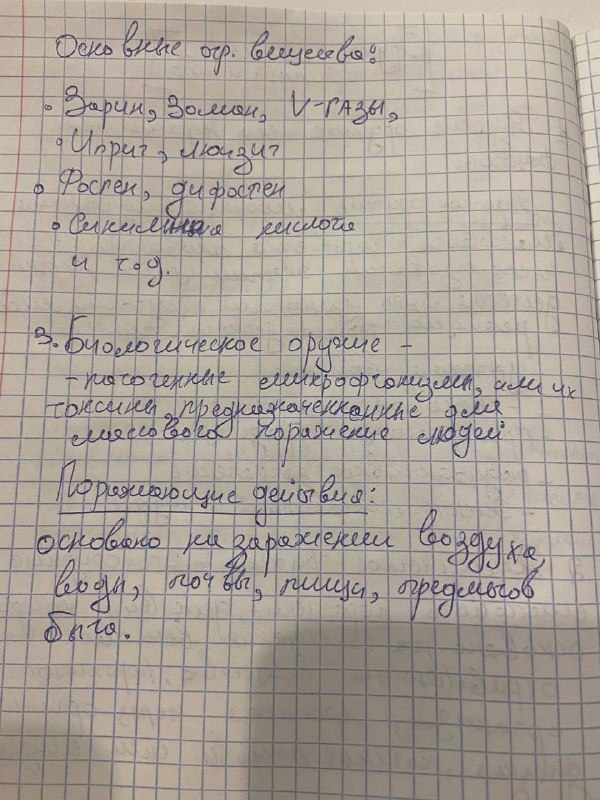 Основные отр. вещества:
• Зарин, Зоман, V-газы,
• Иприт, люизит
• Фосген, дифосген
• Синильная кислота
и т.д.
3. Биологическое оружие -
- патогенные микроорганизмы, или их
токсины, предназначенные для
массового поражение людей
Поражающие действия:
основано на заражении воздуха,
воды, почвы, пищи, предметов
быта.